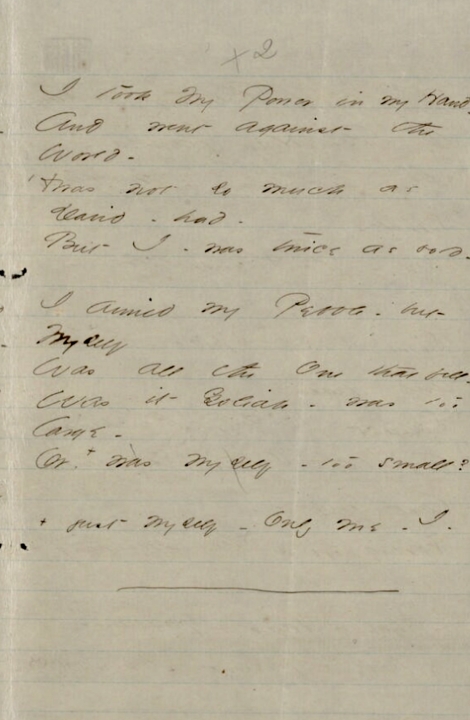 x 2
I took my Power in my Hand
And went against the
World -
'Twas not so much as
David - had -
But I - was twice as bold -
I aimed my Pebble - but
Myself
Was all the One that fell
Was it Goliah - was too
large -
Or + was myself - too small?
+ just myself - Only me - I -